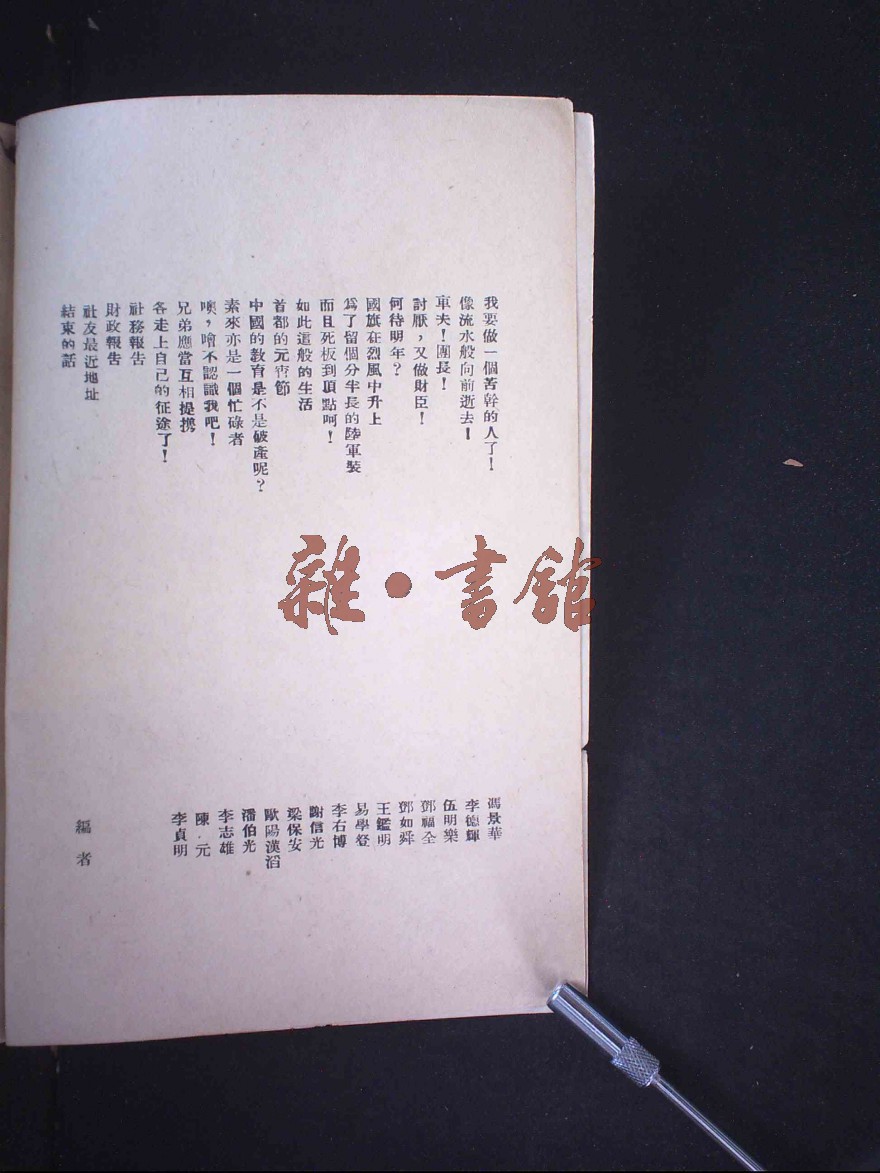 我要做一個苦幹的人了！
馮景華
像流水般向前逝去！
李德輝
車夫！團長！
伍明樂
討厭，又做財臣！
鄧福全
何待明年？
鄧如舜
國旗在烈風中升上
王鑑明
爲了留個分半長的陸軍裝
易學簦
而且死板到頂點呵！
李右博
如此這般的生活
謝信光
首都的元宵節
梁保安
中國的教育是不是破產呢？
歐陽漢滔
素來亦是一個忙碌者
潘伯光
噢，噲不認識我吧！
李志雄
兄弟應當互相提携
陳．元
各走上自己的征途了！
李貞明
社務報告
財政報告
社友最近地址
結束的話
編者
雜•書館